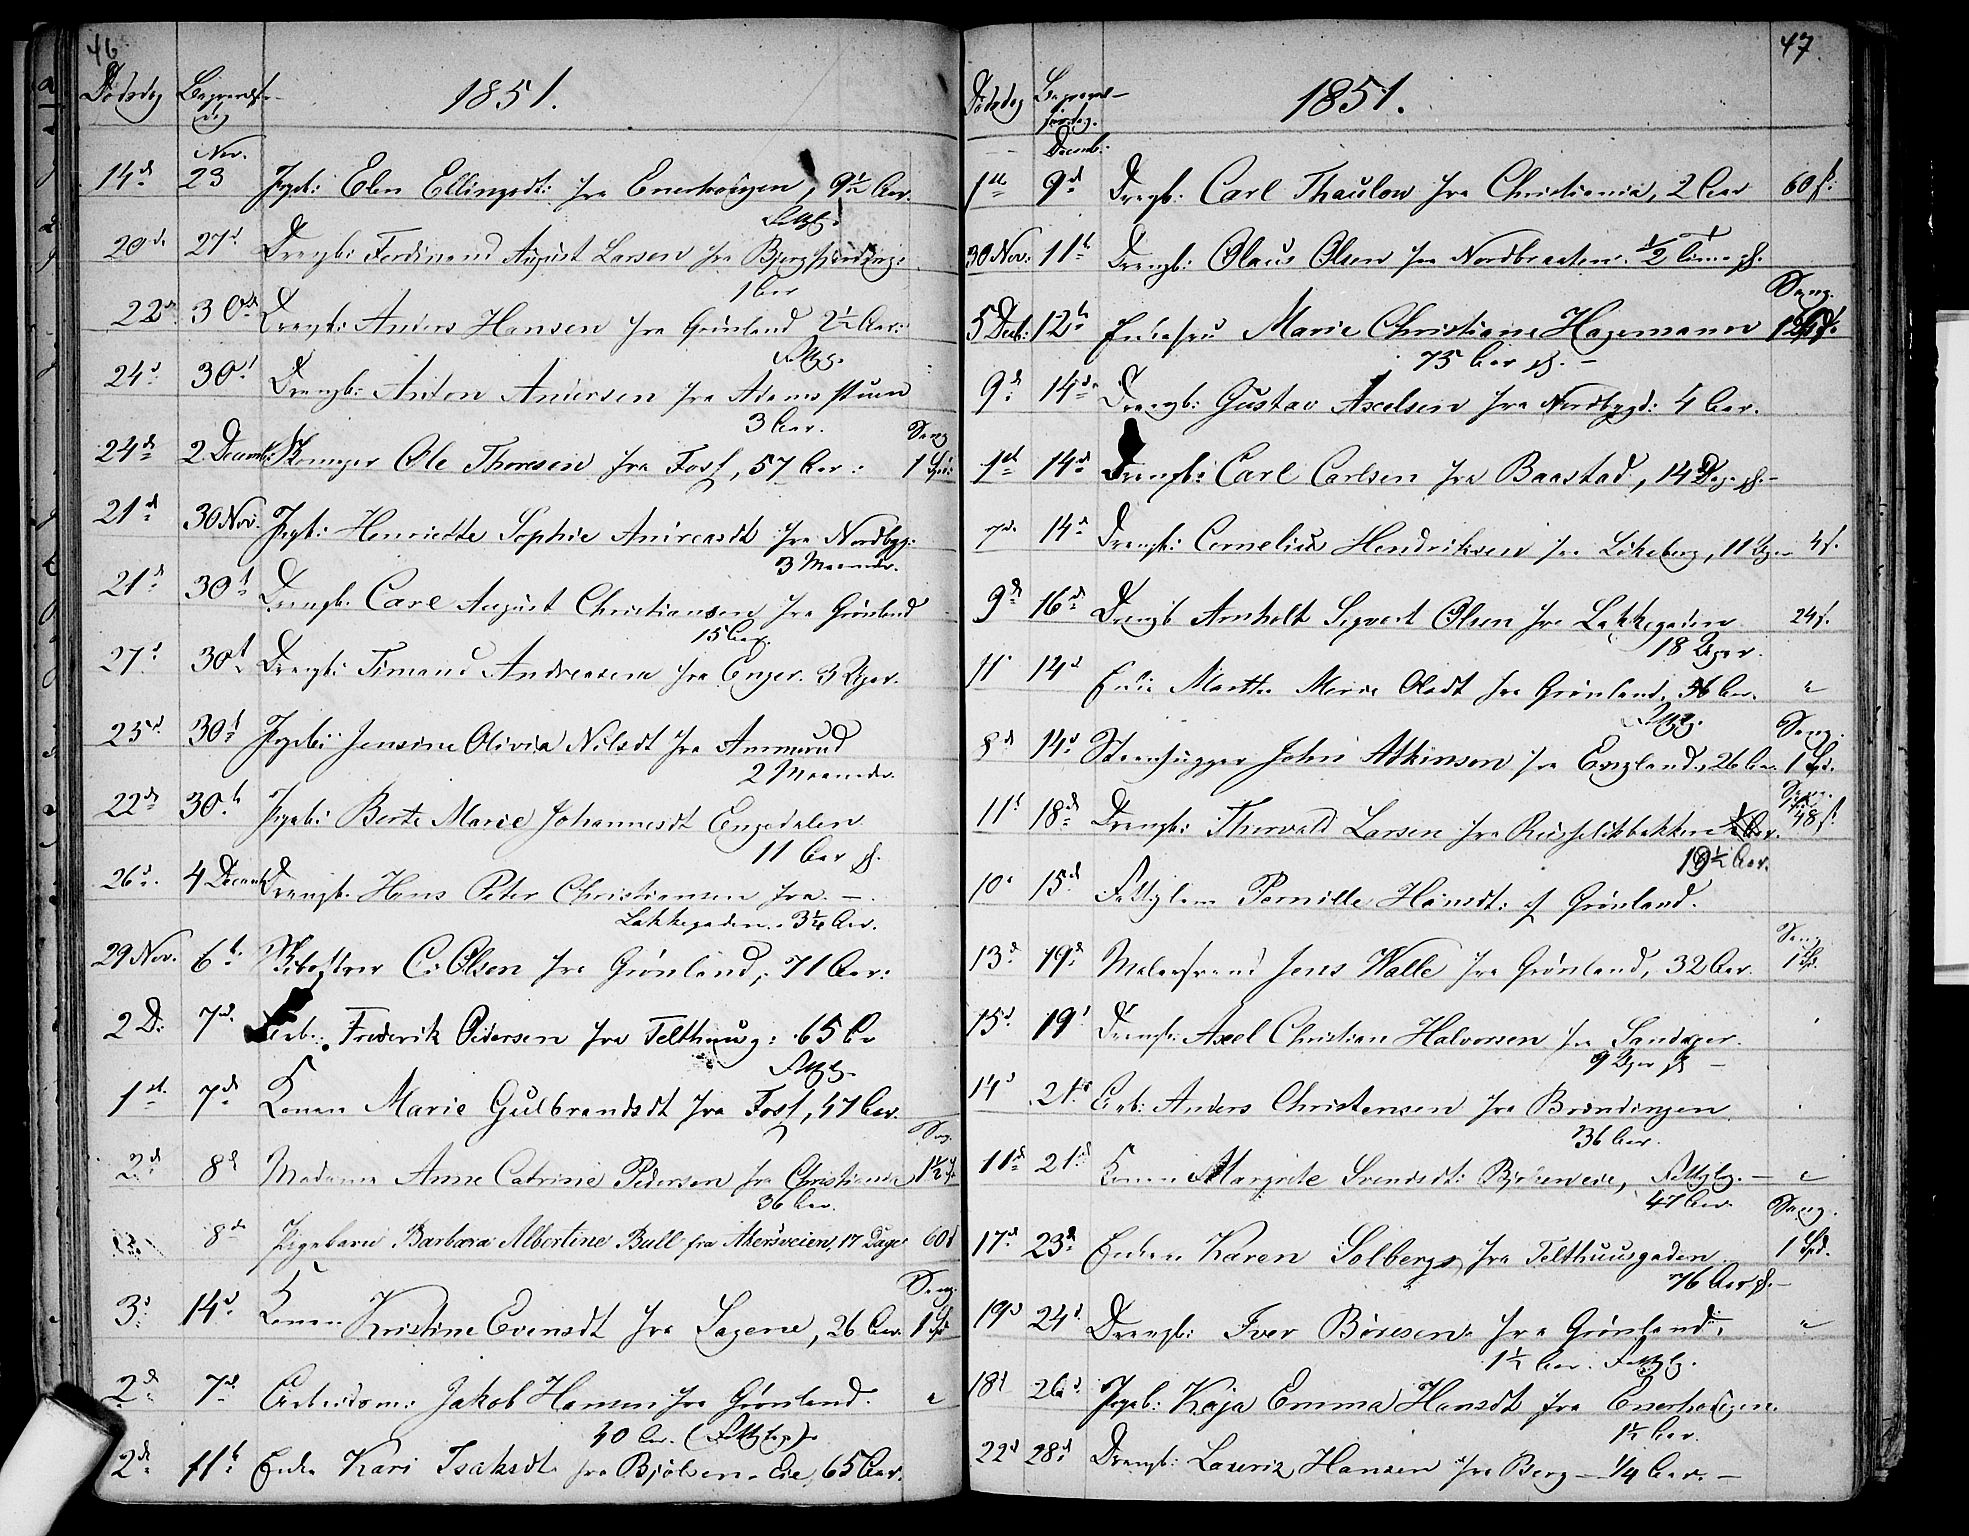 46
Dødsdag Begravelsesdag 1851.
Nov.
14d 23 Pigeb: Elen Ellingsdt: fra Enerhougen, 9½ Aar.
Fattg:
20d 27d Drengb: Ferdinand August Larsen fra Bjergfjerding:
1 Aar
22d 30d Drengb: Anders Hansen fra Grønland 2½ Aar:
Fattg.
24d 30t Drengb: Anton Andersen fra Adamsstuen
3 Aar. Sang
24d 2 Decemb: Ole Thoresen fra Foss, 57 Aar: 1 Spd:
21d 30 Nov. Pigb: Henriette Sophie Andreasdt fra Nordbyg:
3 Maaneder.
21d 30t Drengb. Carl August Christiansen fra Grønland
15 Aar.
27t 30t Drengb: Simand Andreasen fra Enger. 3 Uger.
25d 30t Pigeb: Jensine Olivia Nilsdt fra Ammerud
2 Maaneder
22d 30t Pigeb: Berte Marie Johannesdt Engedalen
11 Aar
26d 4 Decemb Drengb. Hans Peter Christiansen fra —
Lakkegaden. 3¼ Aar.
29 Nov. 6t C: Olsen fra Grønland, 71 Aar:
2 D: 7d Arb: Frederik Pedersen fra Telthuusg: 65 Aar
Fattg.
1st 7d Konen Marie Gulbrandsdt fra Foss, 47 Aar.
Sang
2d 8d Madame Anne Catrine Pedersen fra Christiania 1½
36 Aar.
8de Pigebarn Barbara Albertine Ball fra Akersveien, 17 Dage 60
Sang.
3d 14d Konen Kristine Evensdt fra Sagene, 26 Aar. 1 Spd
2d 7d Arbeidsm: Jakob Hansen fra Grønland. "
40 Aar. (Fattglg).
2d 11t Enke Kari Isaksdt fra Bjølsen-Eie, 65 Aar.
47.
Dødsdag Begravelsesdag. 1851.
Decemb:
1st 9d Drengb: Carl Thaulow fra Christiania, 2 Aar 60 s:
30 Nov: 11t Drengb: Olaus Olsen fra Nordbraaten. ½ Time
Sang.
5 Decb: 12t Enkefru Marie Christiane Hagemann
75 Aar —
9d 14d Drengb: Gustav Axelsen fra Nordbygd: 4 Aar.
1st 14d Drengb: Carl Carlsen fra Baastad, 14 Dage —
7d 14d Drengb: Cornelius Hendriksen fra Løkeberg, 11 Uger 4 s.
9d 16d Drengb Arnholt Sigvert Olsen fra Lakkegaden 24 s.
18 Uger.
11 14d Enke Marthe Marie Olsdt fra Grønland, 56 Aar. "
Fattg. Sang.
8d 14d Steenhugger John Atkinson fra England, 26 Aar. 1 Spd.
Sang
11t 18d Drengb: Thorvald Larsen fra Ruseløkbakken 48 s.
19½ Aar.
10 15d Fattiglem Pernille Hansdt: af Grønland.
Sang
13d 19d Malersvend Jens Walle fra Grønland, 32 Aar. 1 Spd.
15d 19t Drengb: Axel Christian Halvorsen fra Sandager.
9 Uger —
14d 21d Arb: Anders Christensen fra Brendingen
36 Aar.
11d 21d Konen Margrete Svendsdt: Bjølseneie, Fattglg. — "
47 Aar. Sang.
17d 23d Enken Karen Solberg, fra Telthuusgaden 1 Spd.
76 Aar —
19d 24d Drengb: Iver Børesen fra Grønland, "
1½ Aar. Fattglg.
18d 26d Pigeb: Kaja Emma Hansdt fra Enerhougen.
1½ Aar.
22d 28d Drengb: Lauritz Hansen fra Berg — ¼ Aar. —